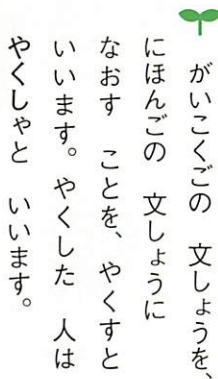 がいこくごの 文しょうを、
にほんごの 文しょうに
なおす ことを、やくすと
いいます。やくした 人は
やくしゃと いいます。